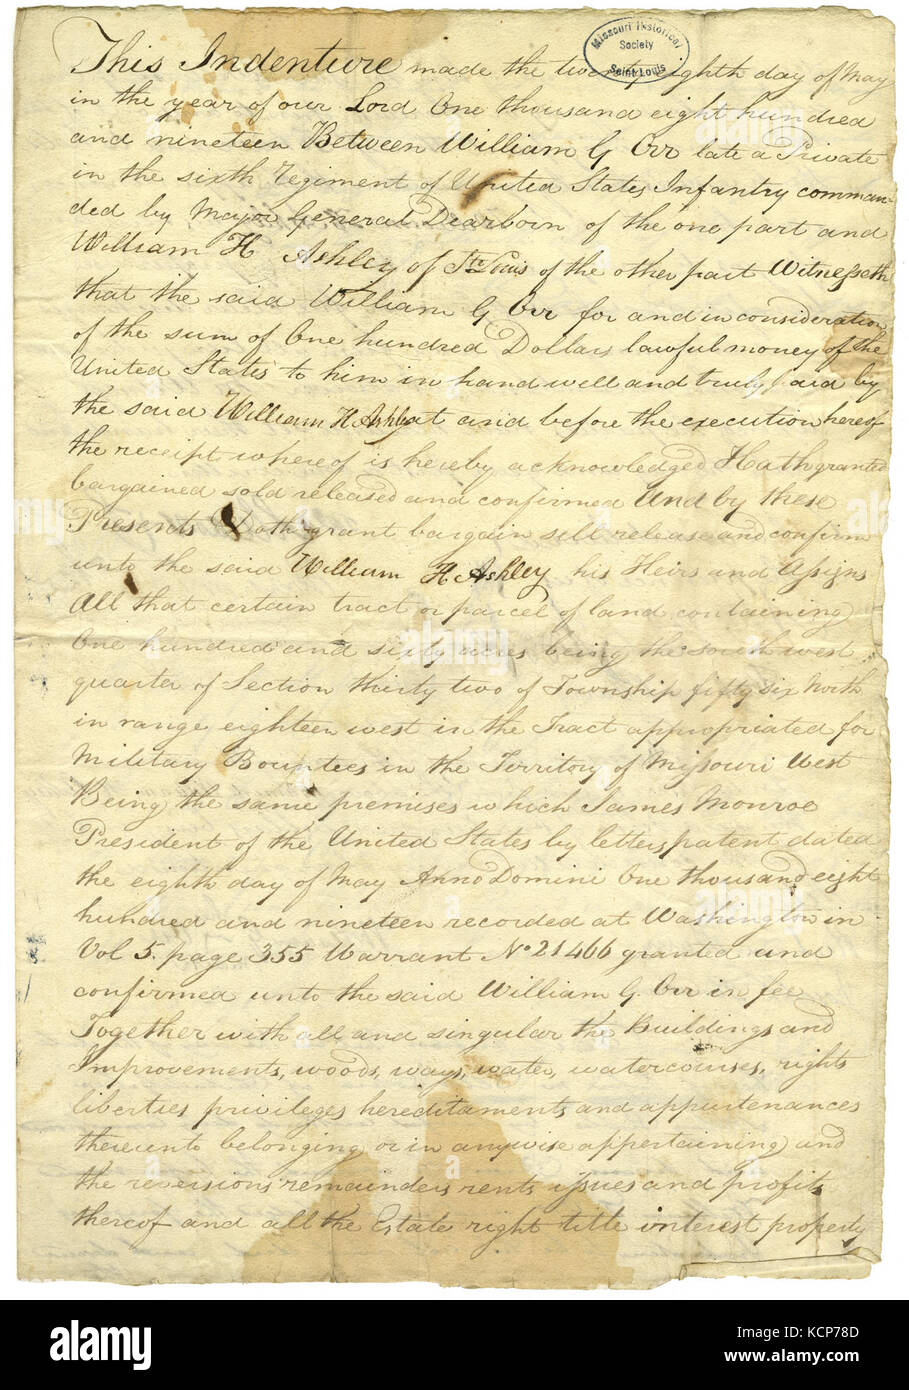 Missouri Historical
Society
Saint Louis
This Indenture made the twenty eighth day of May
in the year of our Lord One thousand eight hundred
and nineteen Between William G Orr late a Private
in the sixth Regiment of United States Infantry comman-
ded by Major General Dearborn of the one part and
William H Ashley of St Louis of the other part Witnesseth
that the said William G Orr for and in consideration
of the sum of One hundred Dollars lawful money of the
United States to him in hand well and truly paid by
the said William H Ashley at and before the execution hereof
the receipt whereof is hereby acknowledged Hath granted
bargained sold released and confirmed And by these
Presents Doth grant bargain sell release and confirm
unto the said William H. Ashley his Heirs and Assigns
All that certain tract or parcel of land containing
One hundred and sixty acres being the south west
quarter of Section thirty two of Township fifty six North
in range eighteen west in the Tract appropriated for
Military Bounties in the Territory of Missouri West
Being the same premises which James Monroe
President of the United States by letters patent dated
the eighth day of May Anno Domini One thousand eight
hundred and nineteen recorded at Washington in
Vol 5. page 355 Warrant No 21466 granted and
confirmed unto the said William G. Orr in fee
Together with all and singular the Buildings and
Improvements, woods, ways, water, watercourses, rights
liberties privileges hereditaments and appurtenances
thereunto belonging or in anywise appertaining and
the reversions remainders rents issues and profits
thereof and all the Estate right title interest property
alamy
Image ID: KCP78D
www.alamy.com